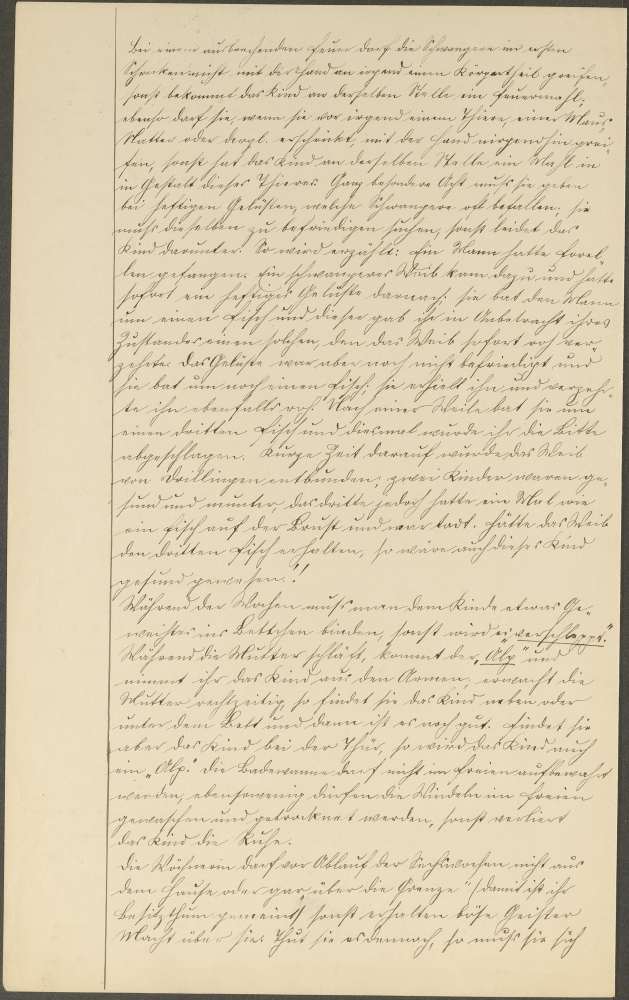 Bei einem ausbrechenden Feuer darf die Schwangere im ersten
Schrecken nicht mit der Hand an irgend einen Körpertheil greifen,
sonst bekommt das Kind an derselben Stelle ein Feuermahl;
ebenso darf sie, wenn sie vor irgend einem Thiere, einer Maus,
Natter oder dergl. erschrickt, mit der Hand nirgendhin grei-
fen, sonst hat das Kind an derselben Stelle ein Mahl in
in Gestalt dieses Thieres. Ganz besondere Acht muß sie geben
bei heftigen Gelüsten, welche Schwangere oft befallen; sie
muß dieselben zu befriedigen suchen, sonst leidet das
Kind darunter. So wird erzählt: Ein Mann hatte Forel-
len gefangen. Ein schwangeres Weib kam dazu und hatte
sofort ein heftiges Gelüste darnach; sie bat den Mann
um einen Fisch und dieser gab ihr in Anbetracht ihres
Zustandes einen solchen, den das Weib sofort roh ver-
zehrte. Das Gelüste war aber noch nicht befriedigt und
sie bat um noch einen Fisch; sie erhielt ihn und verzehr-
te ihn ebenfalls roh. Nach einer Weile bat sie um
einen dritten Fisch und diesmal wurde ihr die Bitte
abgeschlagen. Kurze Zeit darauf wurde das Weib
von Drillingen entbunden; zwei Kinder waren ge-
sund und munter, das dritte jedoch hatte ein Mal wie
ein Fisch auf der Brust und war todt. Hätte das Weib
den dritten Fisch erhalten, so wäre auch dieses Kind
gesund gewesen.!
Während der Wochen muß man dem Kinde etwas Ge-
weihtes ins Bettchen binden, sonst wird es „verschleppt."
Während die Mutter schläft, kommt der „Alp" und
nimmt ihr das Kind aus den Armen; erwacht die
Mutter rechtzeitig, so findet sie das Kind neben oder
unter dem Bett und dann ist es noch gut. Findet sie
aber das Kind bei der Thür, so wird das Kind auch
ein „Alp." Die Badewanne darf nicht im Freien aufbewahrt
werden, ebensowenig dürfen die Windeln im Freien
gewaschen und getrocknet werden, sonst verliert
das Kind die Ruhe.
Die Wöchnerin darf vor Ablauf der Sechswochen nicht aus
dem Hause oder gar „über die Grenze" (damit ist ihr
Besitzthum gemeint) sonst erhalten böse Geister
Macht über sie. Thut sie es dennoch, so muß sie sich